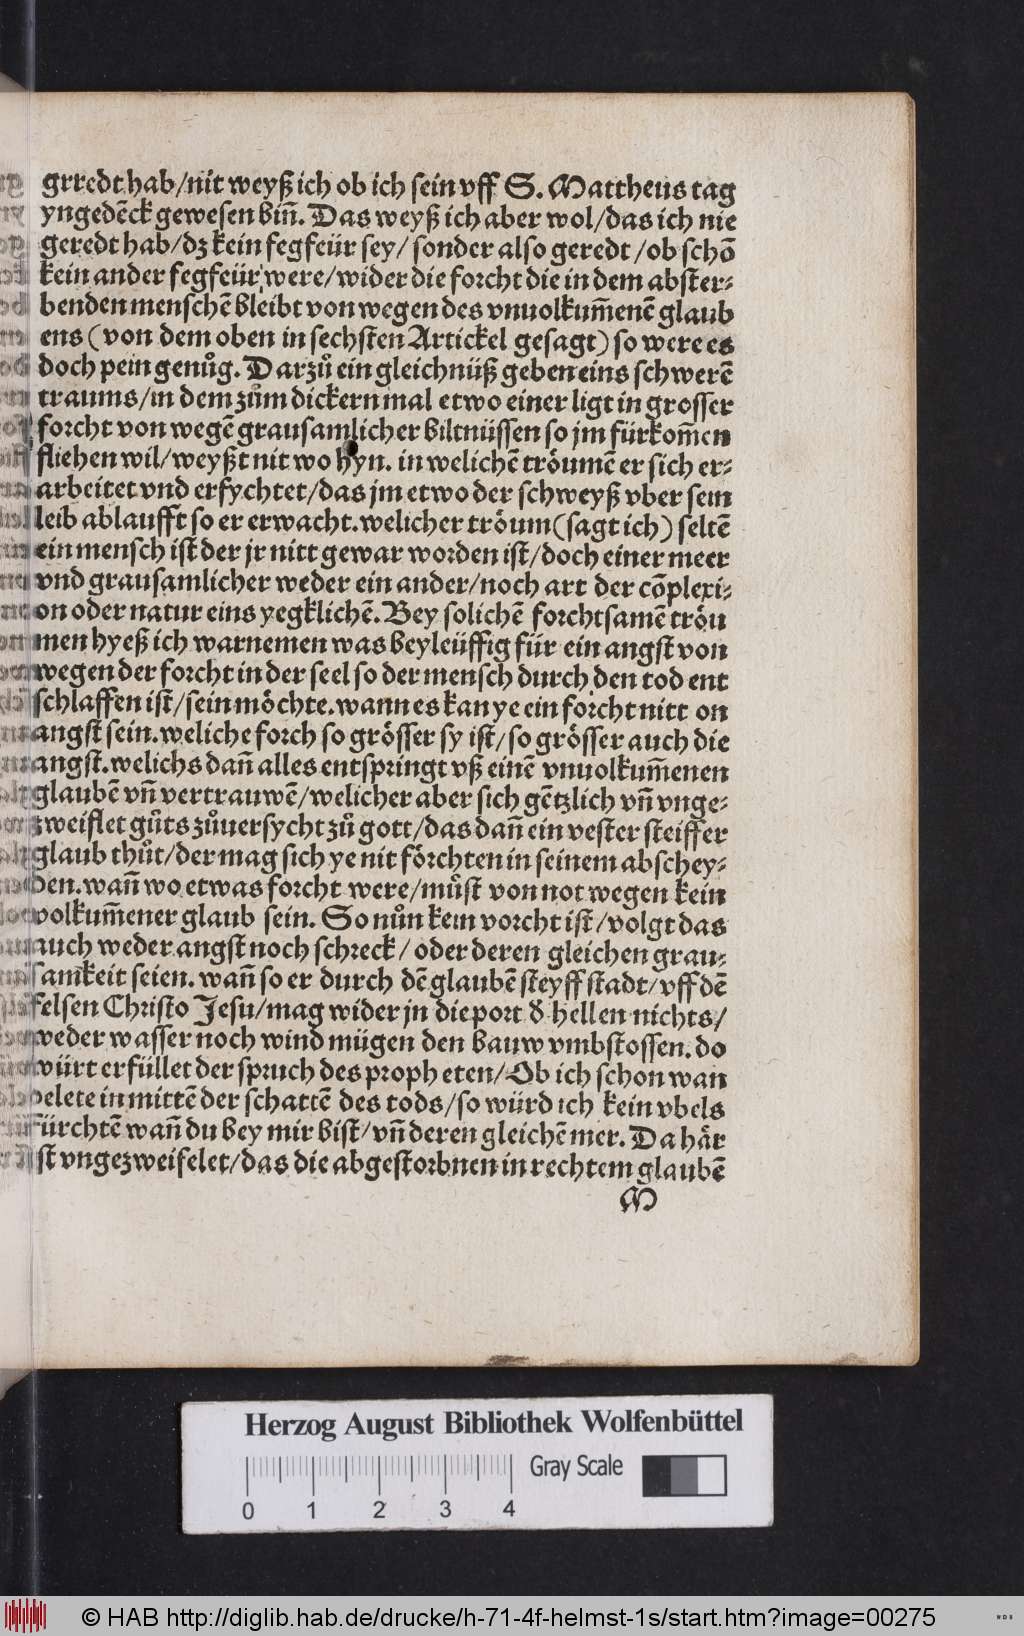 grredt hab/nit weyß ich ob ich sein vff S. Mattheus tag
yngedēck gewesen biñ. Das weyß ich aber wol/das ich nie
geredt hab/dz kein fegfeür sey/ sonder also geredt/ob schō
kein ander fegfeür were/wider die forcht die in dem abster-
benden menschē bleibt von wegen des vnuolkum̄enē glaub
ens (von dem oben in sechsten Artickel gesagt) so were es
doch pein genůg. Darzů ein gleichnüß geben eins schwerē
traums/in dem zům dickern mal etwo einer ligt in grosser
forcht von wegē grausamlicher biltnüssen so jm fürkom̄en
fliehen wil/weyßt nit wo hyn. in welichē tröumē er sich er-
arbeitet vnd erfychtet/das jm etwo der schweyß vber sein
leib ablaufft so er erwacht. welicher tröum (sagt ich) seltē
ein mensch ist der jr nitt gewar worden ist/doch einer meer
vnd grausamlicher weder ein ander/noch art der cōplexi-
on oder natur eins yegklichē. Bey solichē forchtsamē tröu
men hyeß ich warnemen was beyleüffig für ein angst von
wegen der forcht in der seel so der mensch durch den tod ent
schlaffen ist/sein möchte. wann es kan ye ein forcht nitt on
angst sein. weliche forch so grösser sy ist/so grösser auch die
angst. welichs dañ alles entspringt vß einē vnuolkum̄enen
glaubē vñ vertrauwē/welicher aber sich gētzlich vñ vnge-
zweiflet gůts zůuersycht zů gott/das dañ ein vester steiffer
glaub thůt/der mag sich ye nit förchten in seinem abschey-
den. wañ wo etwas forcht were/můst von not wegen kein
volkum̄ener glaub sein. So nůn kein vorcht ist/volgt das
auch weder angst noch schreck/ oder deren gleichen grau-
samkeit seien. wañ so er durch dē glaubē steyff stadt/vff dē
felsen Christo Jesu/mag wider jn die port đ hellen nichts/
weder wasser noch wind mügen den bauw vmbstossen. do
würt erfüllet der spruch des proph eten/Ob ich schon wan
delete in mittē der schattē des tods/so würd ich kein vbels
fürchtē wañ du bey mir bist/vñ deren gleichē mer. Da här
ist vngezweifelet/das die abgestorbnen in rechtem glaubē
M
Herzog August Bibliothek Wolfenbüttel
Gray Scale
0 1 2 3 4
© HAB http://diglib.hab.de/drucke/h-71-4f-helmst-1s/start.htm?image=00275